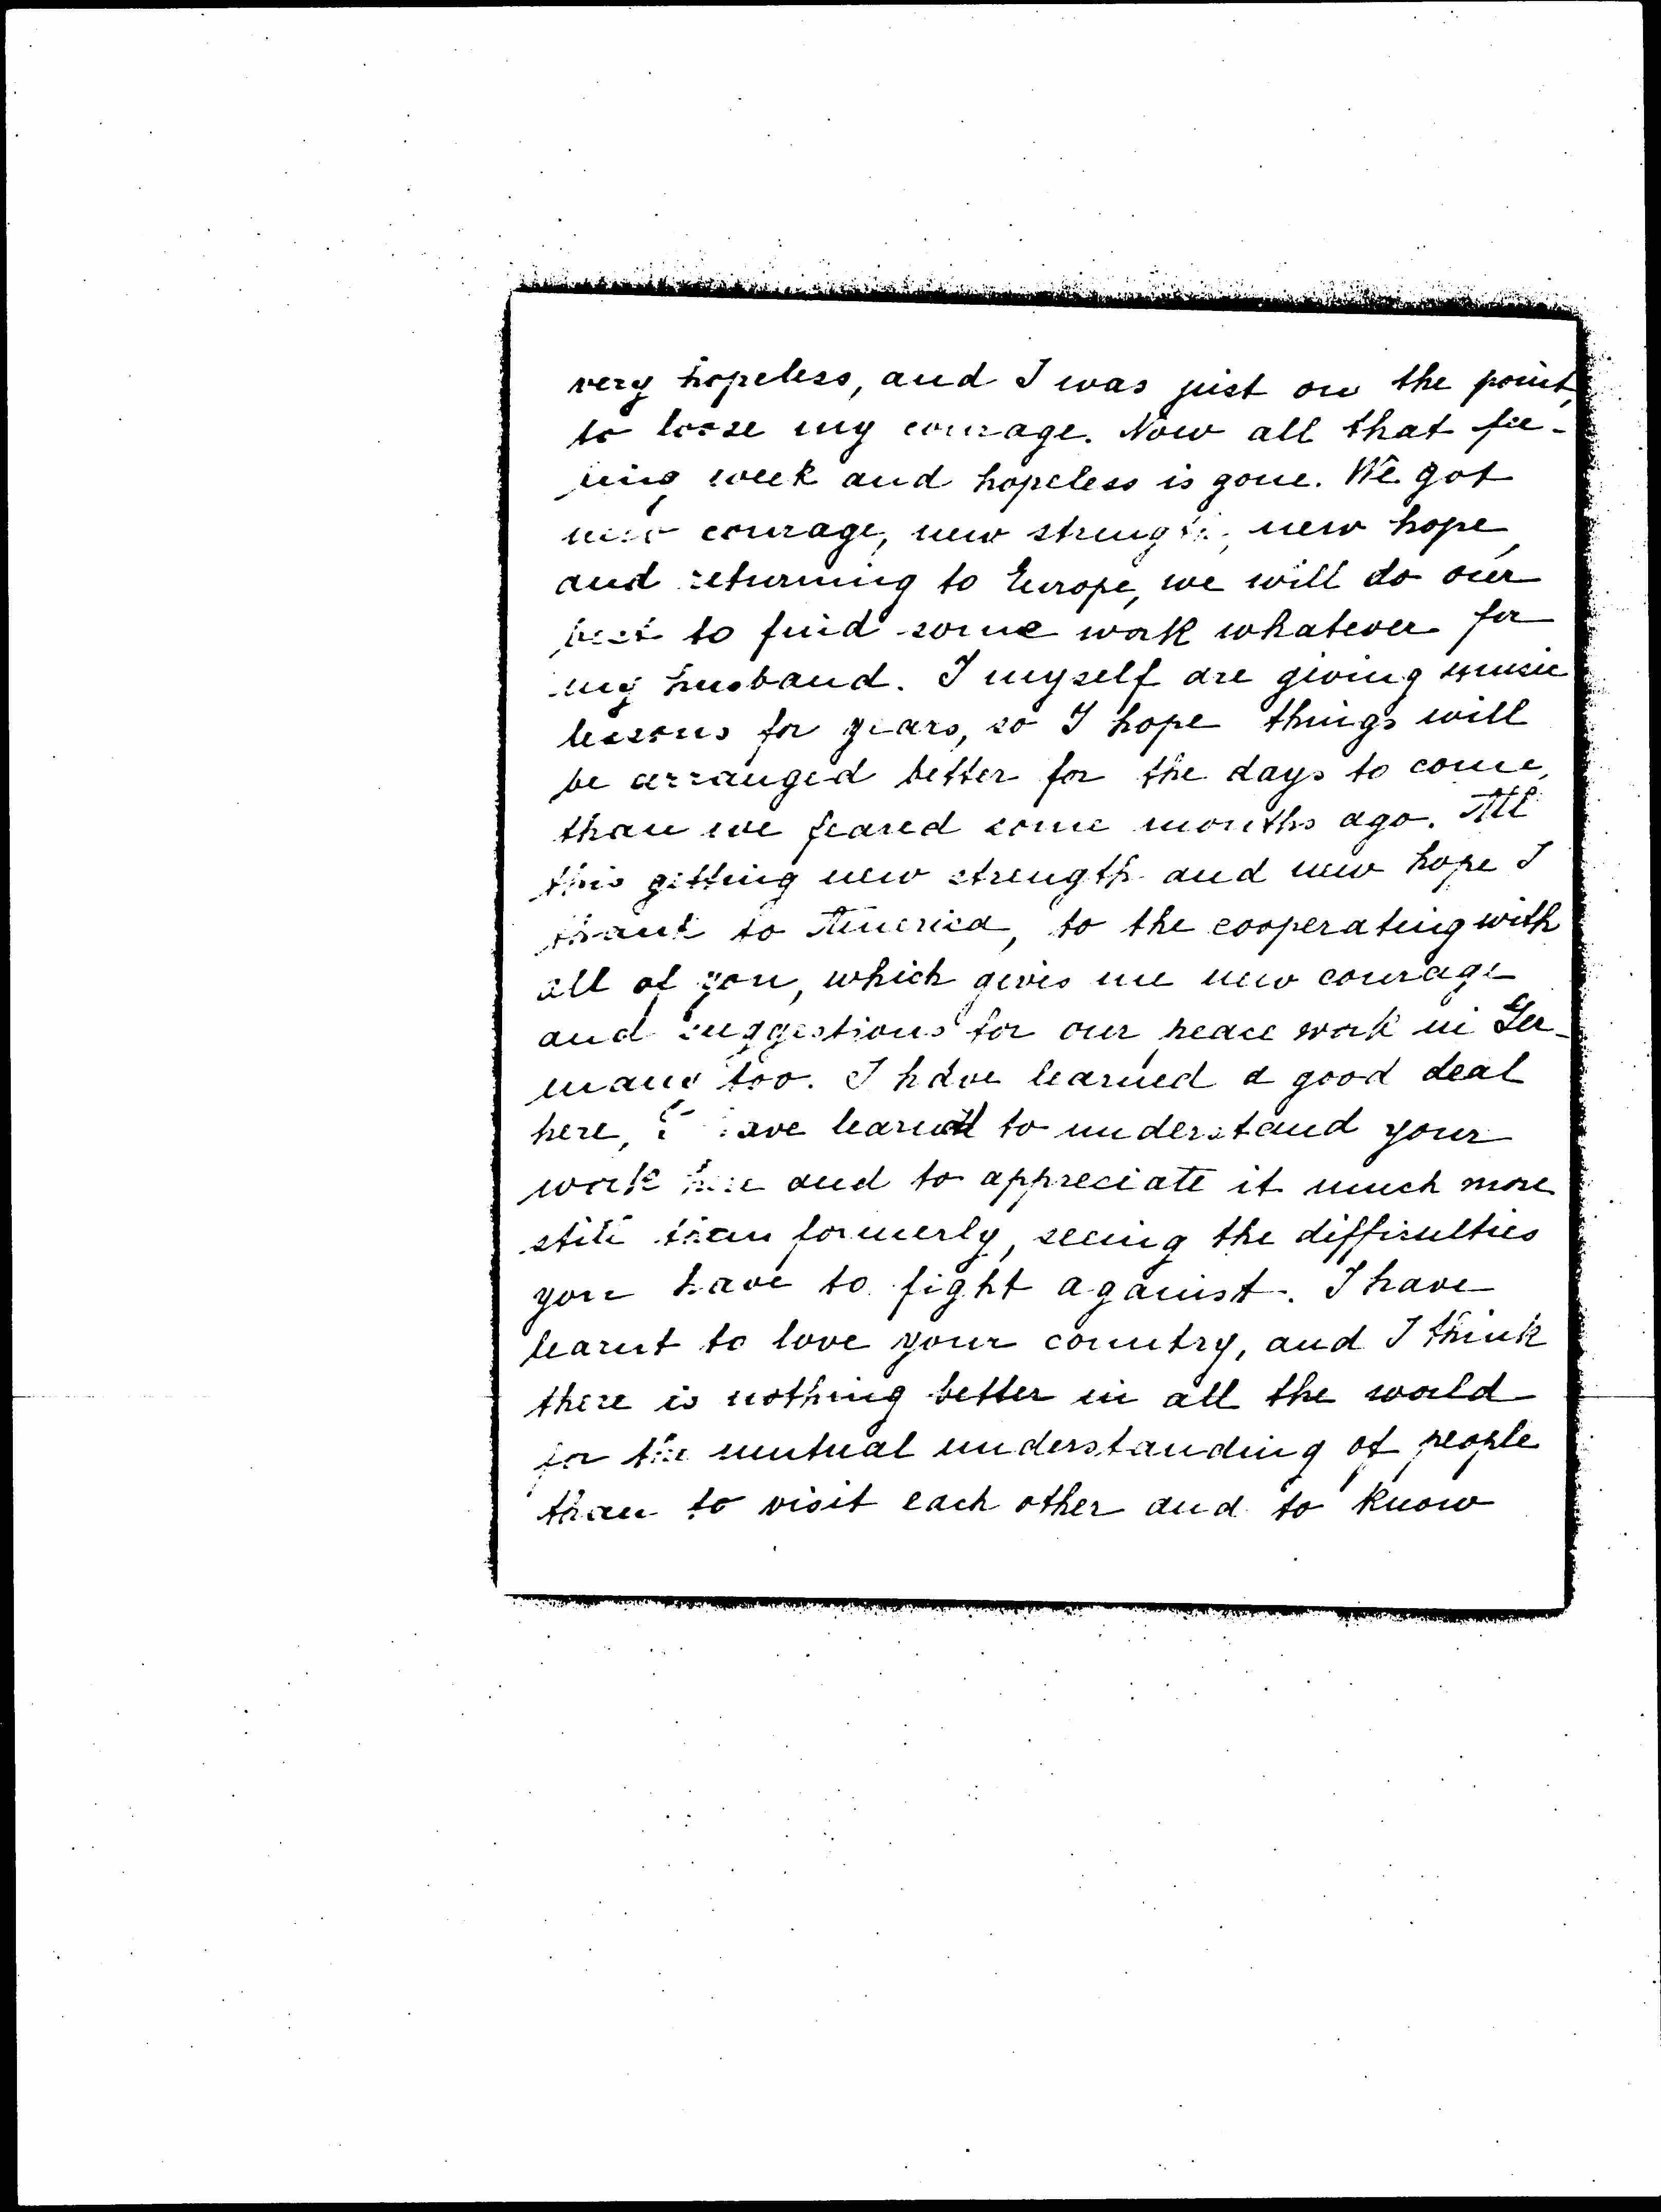 very hopeless, and I was just on the point,
to loose my courage. Now all that fee-
ling week and hopeless is gone. We got
new courage, new strength, new hope,
and returning to Europe, we will do our
best to find some work whatever for
my husband. I myself are giving music
lessons for years, so I hope things will
be arranged better for the days to come,
than we feared some months ago. All
this getting new strength and new hope I
thank to America, to the cooperating with
all of you, which gives me new courage
and suggestions for our peace work in Ger-
many too. I have learned a good deal
here, I have learnt to understand your
work here and to appreciate it much more
still than formerly, seeing the difficulties
you have to fight against. I have
learnt to love your country, and I think
there is nothing better in all the world
for the mutual understanding of people
than to visit each other and to know